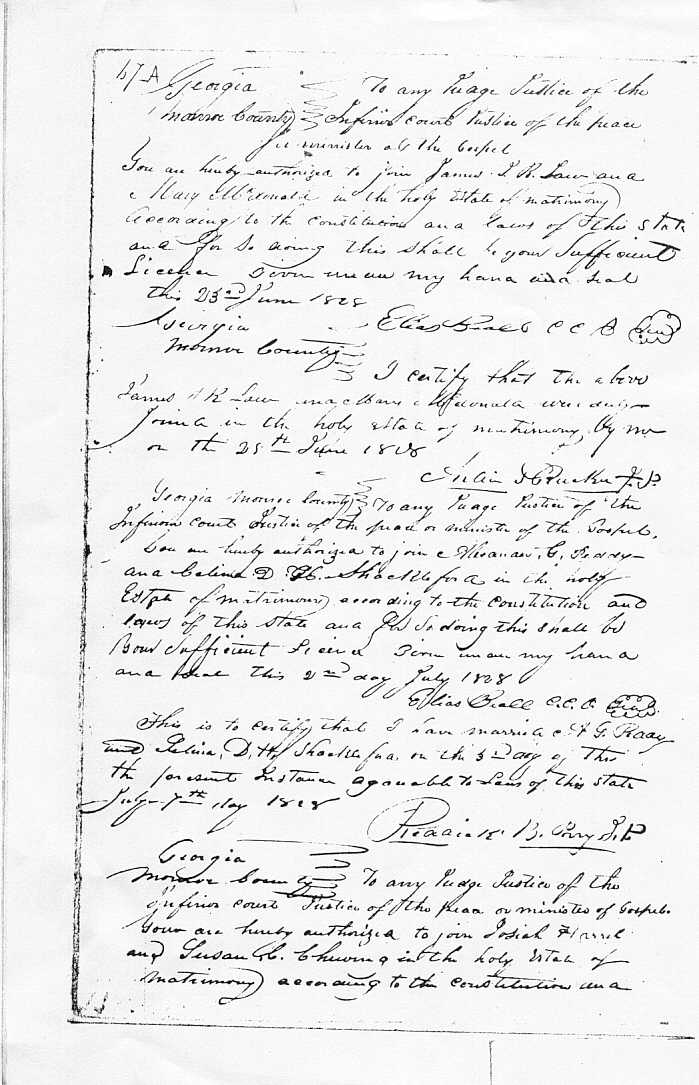 47 A
Georgia To any Judge Justice of the
Monroe County Inferior court Justice of the peace
or minister of the Gospel
You are hereby authorized to join James I. R. Law and
Mary McDonald in the holy Estate of matrimony
according to the constitution and laws of this State
and for so doing this shall be your Sufficient
License Given under my hand and seal
this 23rd June 1828
Georgia Elias Beall C C O Seal
Monroe County
I certify that the above
James R Law and Mary McDonald were duly
Joined in the holy Estate of matrimony by me
on the 25th June 1828
Tucker J.P.
Georgia Monroe County To any Judge Justice of the
Inferior court Justice of the peace or minister of the Gospel.
You are hereby authorized to join Alexander G.
and Celina D. H. Shackleford in the holy
Estate of matrimony according to the constitution and
laws of this State and for So doing this shall be
Your Sufficient Licence Given under my hand
and seal this 2nd day July 1828
Elias Beall C.C.O. Seal
This is to certify that I have married A G
and Selina D. H. Shackleford on the 3rd day of this
the present Instance agreeable to Laws of this State
July 7th day 1828
Reddick B. Perry J.P
Georgia
Monroe County To any Judge Justice of the
Inferior court Justice of the peace or minister of Gospel.
Your are hereby authorized to join Josiah
and Susan C. in the holy Estate of
matrimony according to the constitution and